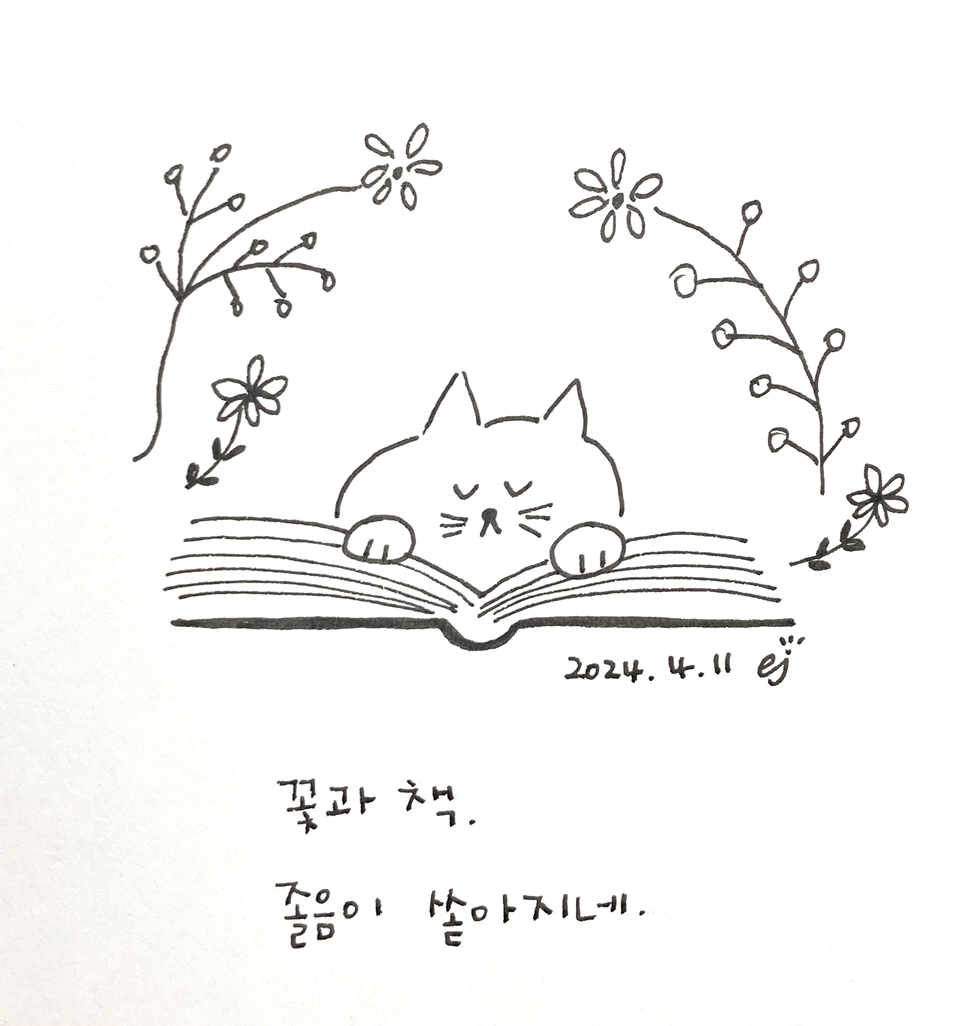 2024. 4. 11 ej
꽃과 책.
졸음이 쏟아지네.